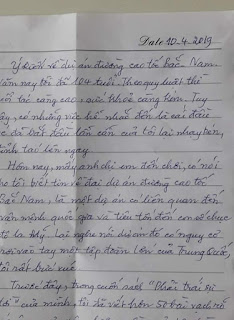 Date 10-4-2019
Ý kiến về dự án đường cao tốc Bắc_Nam
Năm nay tôi đã 104 tuổi. Theo quy luật thì
tuổi tác càng cao, sức khỏe càng kém. Tuy
vậy, có những việc hễ nhắc đến là cái đầu
đã bắt đầu lẩn cẩn của tôi lại nhạy bén,
tỉnh táo lên ngay.
Hôm nay, mấy anh chị em đến chơi, có nói
cho tôi biết tin về đại dự án đường cao tốc
Bắc Nam, là một dự án có liên quan đến
vận mệnh quốc gia và tiêu tốn đến con số chục
tỉ đô la Mỹ. Lại nghe nói dự án đó có nguy cơ
rơi vào tay một tập đoàn lớn của Trung Quốc,
tôi rất bức xúc.
Trước đây, trong cuốn sách "Phải trái sự
đời" của mình, tôi đã viết hơn 50 bài vạch rõ